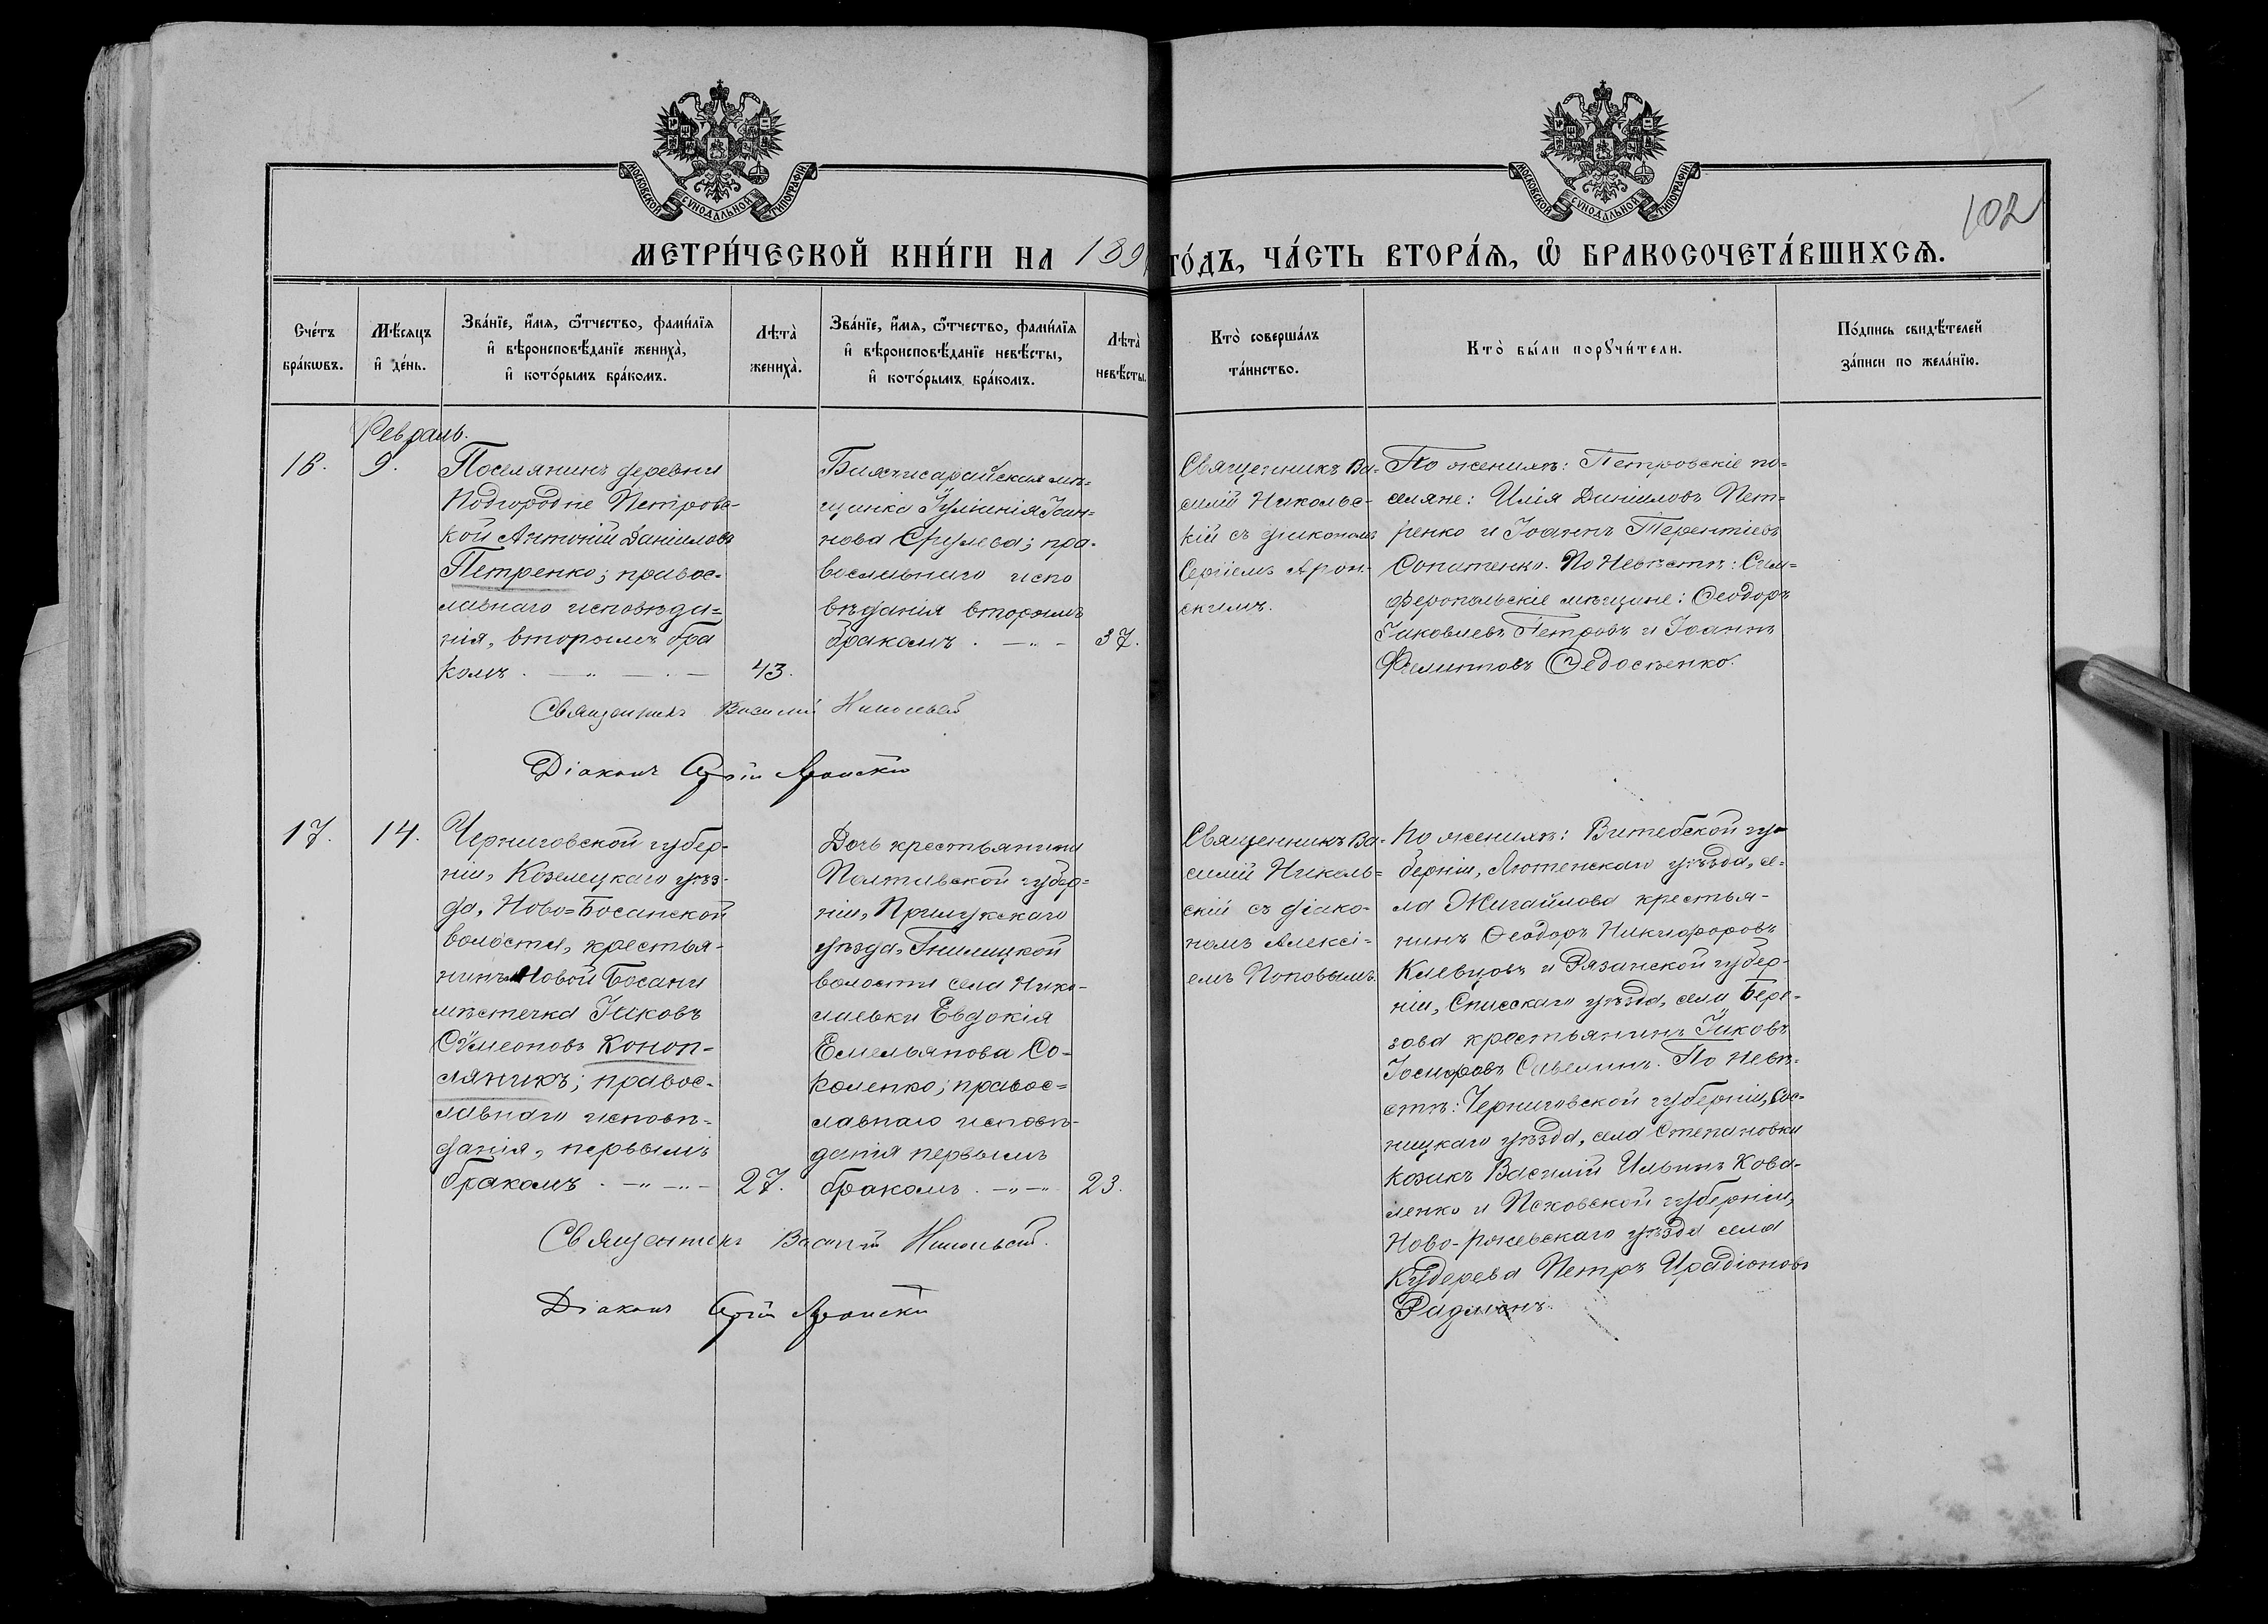 МОСКОВСКОЙ СУНОДАЛЬНОЙ ТИПОГРАФІИ
МОСКОВСКОЙ СУНОДАЛЬНОЙ ТИПОГРАФІИ
102
МЕТРИ́ЧЕСКОЙ КНИ́ГИ НА 189
ГО́ДЪ, ЧА́СТЬ ВТОРА́Ѧ, Ѽ БРАКОСОЧЕТА́ВШИХСѦ.
Сче́тъ
бра́кѡвъ.
Мѣ́сяцъ
и҆ де́нь.
Зва́нїе, и҆́мя, ѻ҆́тчество, фами́лїя
и҆ вѣроисповѣ́данїе жениха̀,
и҆ кото́рымъ бра́комъ.
Лѣта̀
жениха̀.
Зва́нїе, и҆́мя, ѻ҆́тчество, фами́лїя
и҆ вѣроисповѣ́данїе невѣ́сты,
и҆ кото́рымъ бра́комъ.
Лѣта̀
невѣ́сты.
Кто̀ соверша́лъ
та́инство.
Кто̀ бы́ли порꙋчи́тели.
По́дпись свидѣ́телей
за́писи по жела́нїю.
Февраль.
16.
9.
Поселянинъ деревни
Подгородне Петровс-
кой Антоній Даніиловъ
Петренко; правос-
лавнаго исповѣда=
нія, вторымъ бра
комъ.
43.
Бахчисарайская мѣ-
щанка Іуліанія Іоан=
нова; пра-
вославнаго испо
вѣданія вторымъ
бракомъ.
37.
Священникъ Ва-
силій Никольс-
кій съ діакономъ
Сергіемъ Арон-
скимъ.
По женихѣ: Петровскіе по=
селяне: Илія Даніиловъ Пет=
ренко и Іоаннъ Терентіевъ
Сопатенко. По Невѣстѣ: Сим=
феропольскіе мѣщане: Ѳеодоръ
Іаковлевъ Петровъ и Іоаннъ
Филиповъ Ѳедосѣенко.
Священникъ Василій Никольскій
Діаконъ Сергій Аронскій
17.
14.
Черниговской губер-
ніи, Козелецкаго уѣз-
да, Ново=Босанской
волости, крестья-
нинъ Новой Босани
мѣстечка Іаковъ
Сѵмеоновъ Коноп=
ляникъ; правос-
лавнаго исповѣ-
данія, первымъ
бракомъ.
27.
Дочь крестьянина
Полтавской губер=
ніи, Прилукскаго
уѣзда, Гнилицкой
волости села Нико-
лаевки Евдокія
Емельянова Со-
коленко; правос=
лавнаго исповѣ-
данія первымъ
бракомъ.
23.
Священникъ Ва-
силій Николь=
скій съ діако-
номъ Алексі=
емъ Поповымъ.
По женихѣ: Витебской гу=
берніи, Лютенскаго уѣзда, се=
ла Михайлова крестья-
нинъ Ѳеодоръ Никифоровъ
Клевцовъ и Рязанской губер-
ніи, Спасскаго уѣзда, села Бере-
зова крестьянинъ Іаковъ
Іосифовъ Савелинъ. По невѣ=
стѣ: Черниговской губерніи, Сос-
ницкаго уѣзда, села Степановки
козакъ Василій Ильинъ Кова-
ленко и Псковской губерніи,
Ново-ржевскаго уѣзда села
Кудерева Петръ Ирадіоновъ
Священникъ Василій Никольскій.
Діаконъ Сергій Аронскій